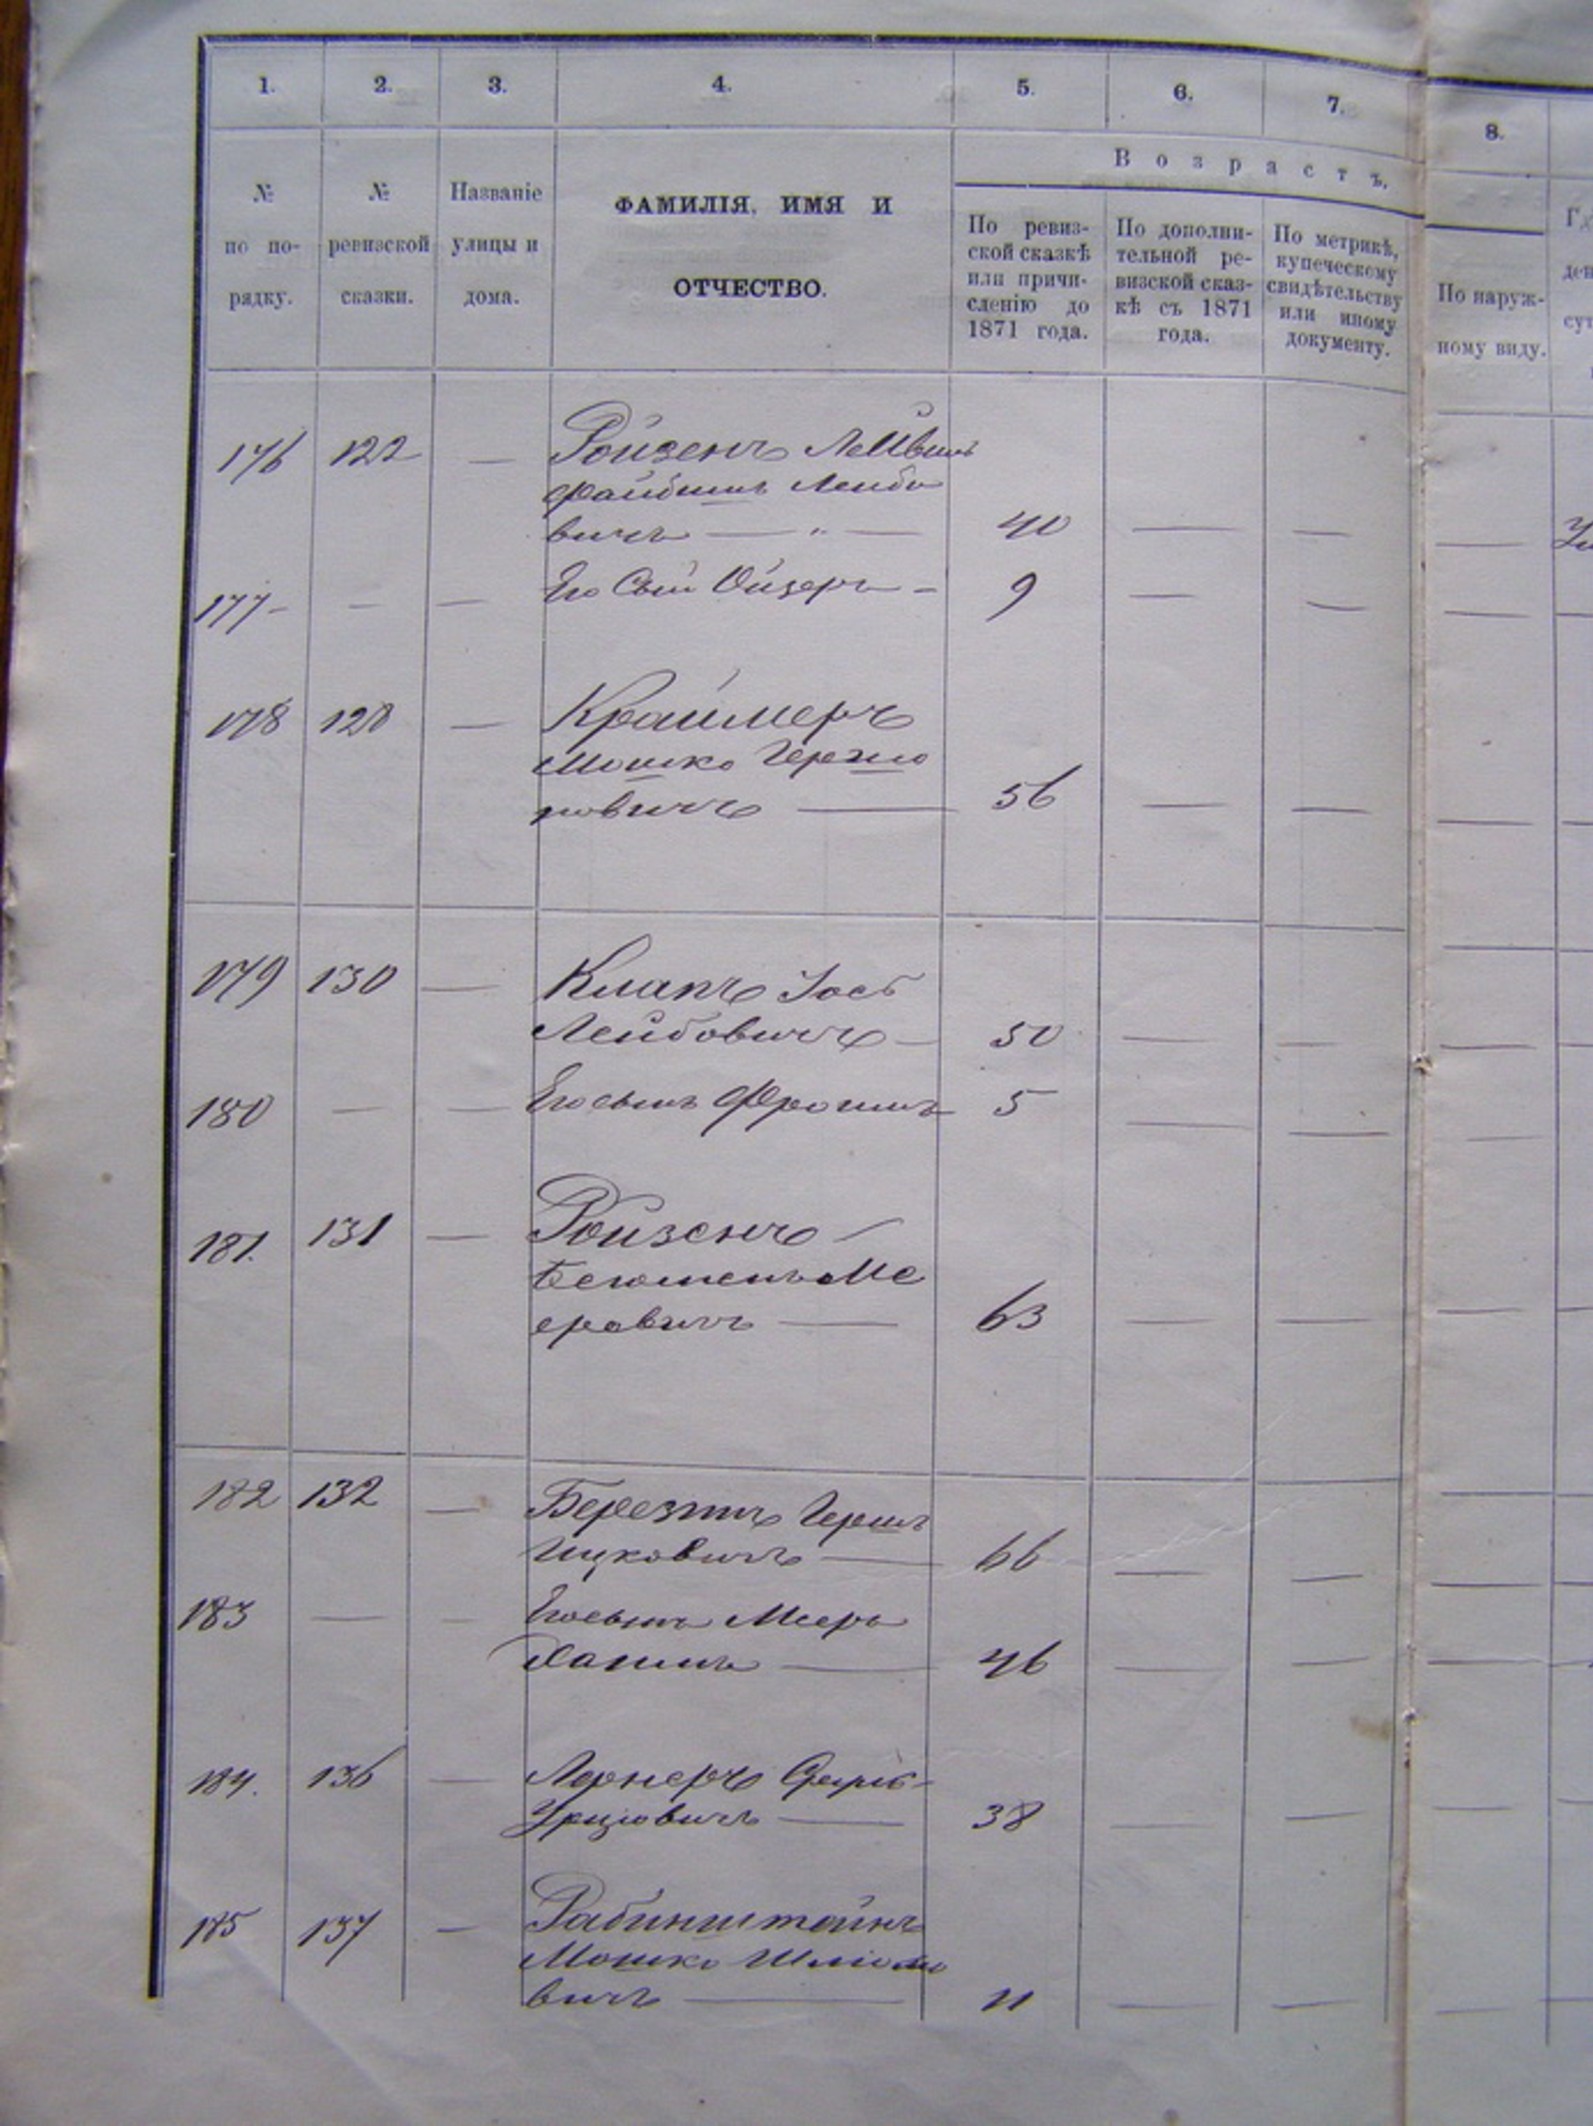 1. 2. 3. 4. 5. 6. 7. 8.
Возрастъ.
№ по порядку.
№ ревизской сказки.
Названіе улицы и дома.
ФАМИЛІЯ, ИМЯ И
ОТЧЕСТВО.
По ревиз-
ской сказкѣ
или причи-
сленію до
1871 года.
По дополни-
тельной ре-
визской сказ-
кѣ съ 1871
года.
По метрикѣ,
купеческому
свидѣтельству
или иному
документу.
По наруж-
ному виду.
176 122 — Ройзенъ
Файбишъ Лейбо
вичъ — „ — 40 — — —
177 — — Его Сын Ойзеръ — 9 — — —
178 128 — Краймеръ
Мошко Гершко
повичъ — 56 — — —
179 130 — Клапъ Іось
Лейбовичъ — 50 — — —
180 — — Его сынъ Фроимъ 5 — — —
181. 131 — Ройзенъ —
Ме
еровичъ — 63 — — —
182 132 — Березинъ Гершъ
Ицковичъ — 66 — — —
183 — — Его сынъ Мееръ
Хаимъ — 46 — — —
184. 136 — Лернеръ
38 — — —
185 137 — Рабинштейнъ
Мошко Шліомо
вичъ — 11 — — —